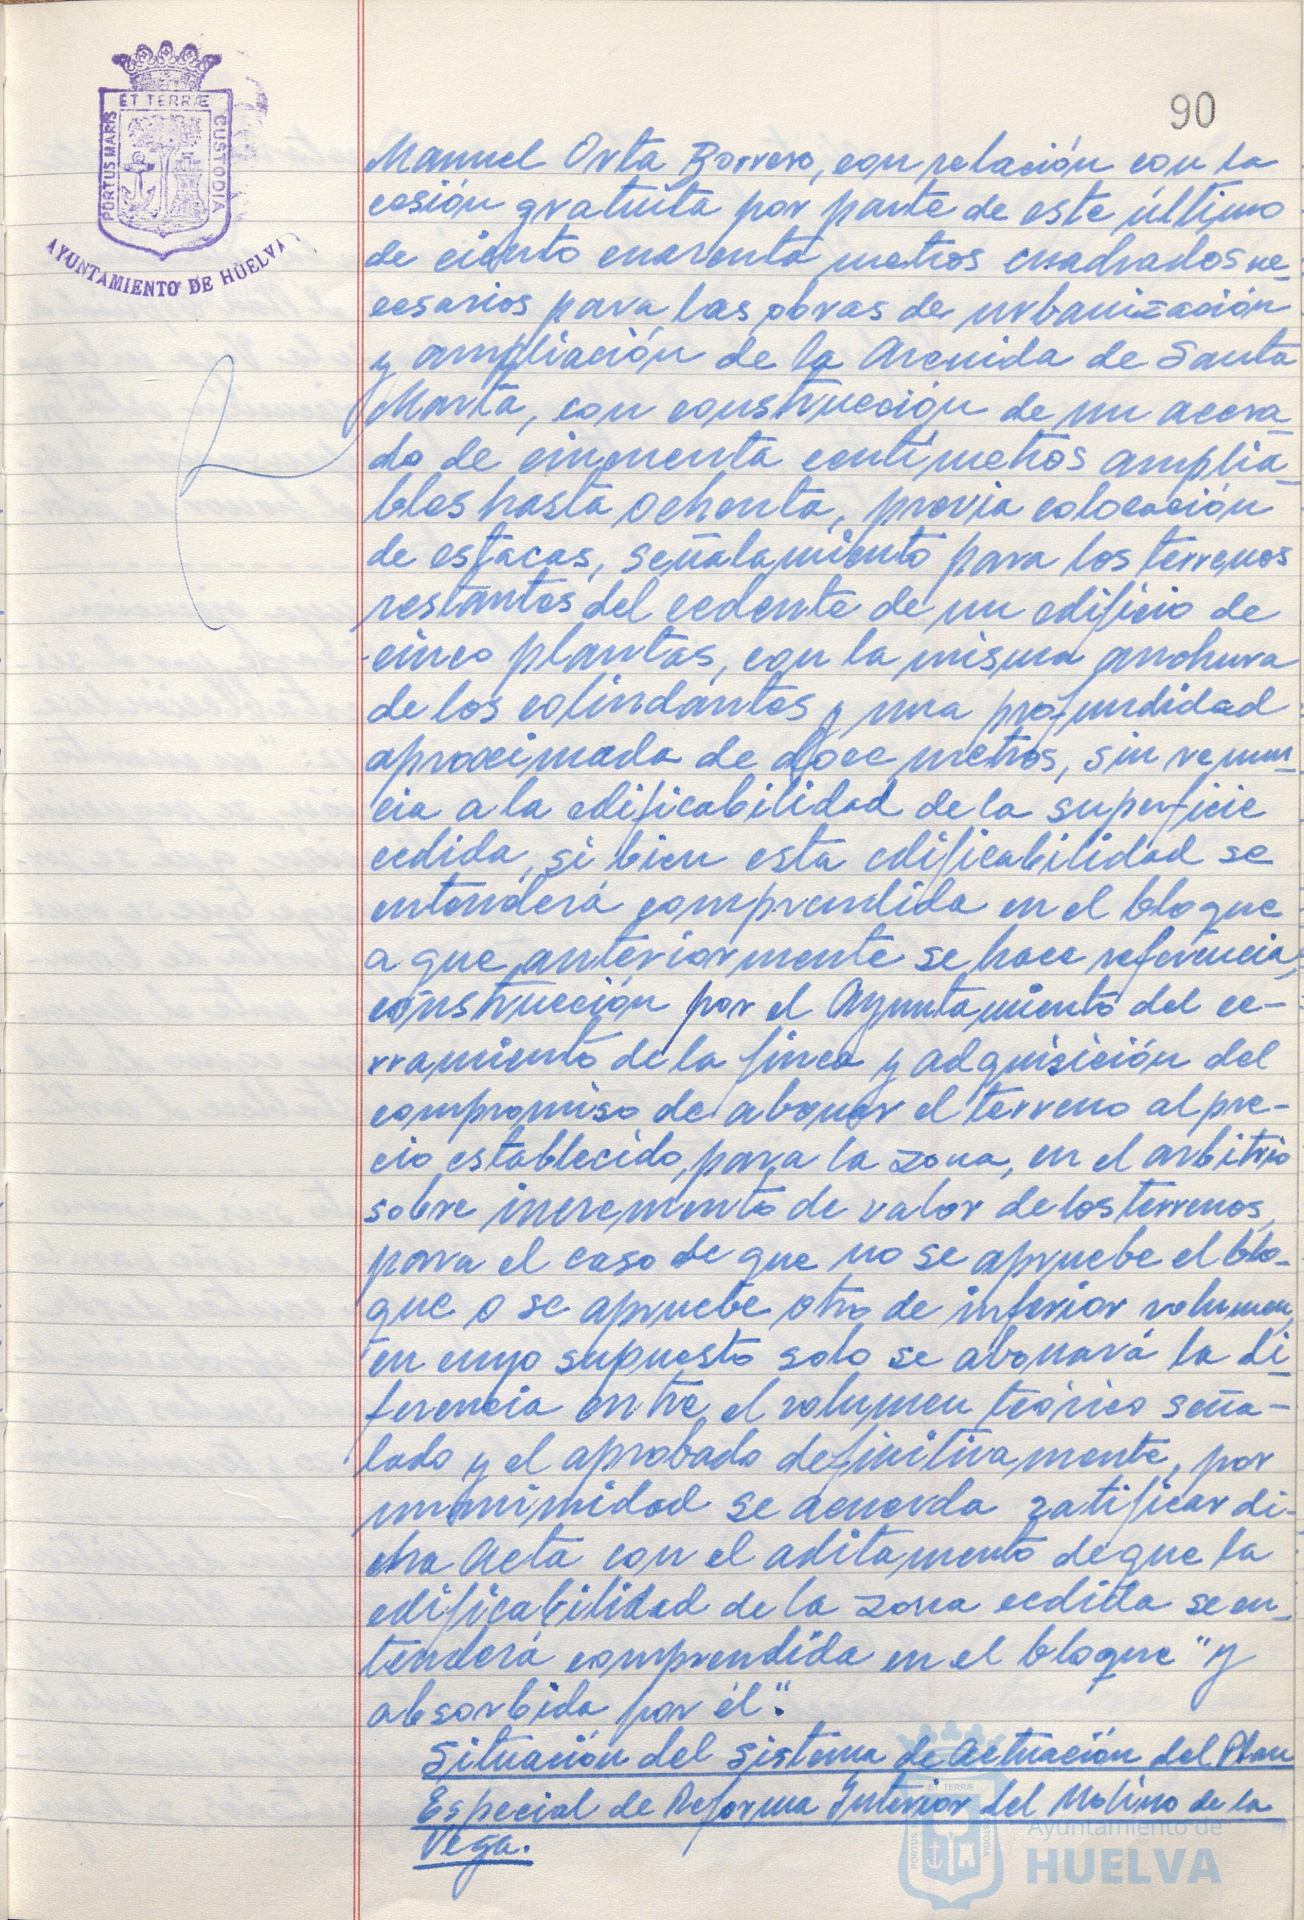 ET TERRÆ
PORTUS MARIS
CUSTODIA
AYUNTAMIENTO DE HUELVA
90
Manuel Orta Borrero, con relación con la
cesión gratuita por parte de este último
de ciento cuarenta metros cuadrados ne-
cesarios para las obras de urbanización
y ampliación de la Avenida de Santa
Marta, con construcción de un acera-
do de cincuenta centímetros amplia-
bles hasta ochenta, previa colocación
de estacas, señalamiento para los terrenos
restantes del cedente de un edificio de
cinco plantas, con la misma anchura
de los colindantes y una profundidad
aproximada de doce metros, sin renun-
cia a la edificabilidad de la superficie
cedida, si bien esta edificabilidad se
entenderá comprendida en el bloque
a que anteriormente se hace referencia,
construcción por el Ayuntamiento del ce-
rramiento de la finca y adquisición del
compromiso de abonar el terreno al pre-
cio establecido, para la zona, en el arbitrio
sobre incremento de valor de los terrenos,
para el caso de que no se apruebe el blo-
que o se apruebe otro de inferior volumen,
en cuyo supuesto solo se abonará la di-
ferencia entre el volumen teórico seña-
lado y el aprobado definitivamente, por
unanimidad se acuerda ratificar di-
cha Acta con el aditamento de que la
edificabilidad de la zona cedida se en-
tenderá comprendida en el bloque "y
absorbida por él".
Situación del sistema de Actuación del Plan
Especial de Reforma Interior del Molino de la
Vega.
Ayuntamiento de
HUELVA